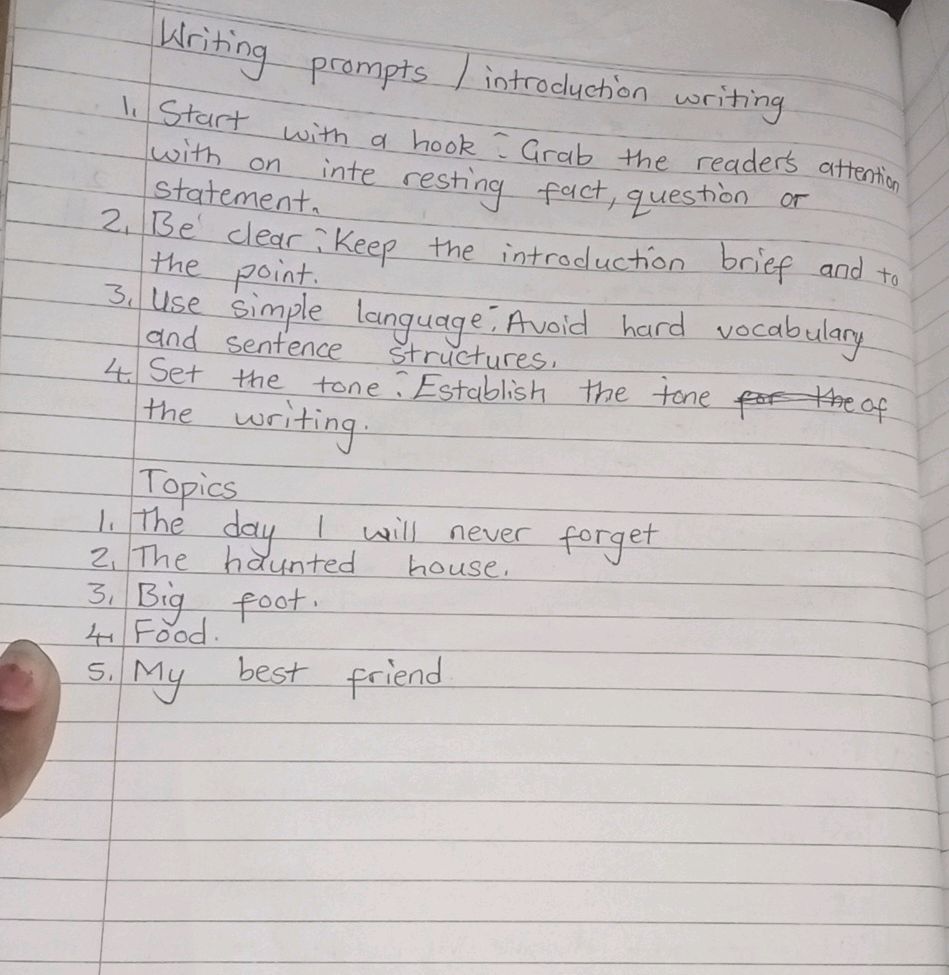 Writing prompts / introduction writing
1. Start with a hook : Grab the reader's attention
with on inte resting fact, question or
statement.
2. Be clear : Keep the introduction brief and to
the point.
3. Use simple language : Avoid hard vocabulary
and sentence structures.
4. Set the tone : Establish the tone for the of
the writing.
Topics
1. The day I will never forget
2. The haunted house.
3. Big foot.
4. Food.
5. My best friend